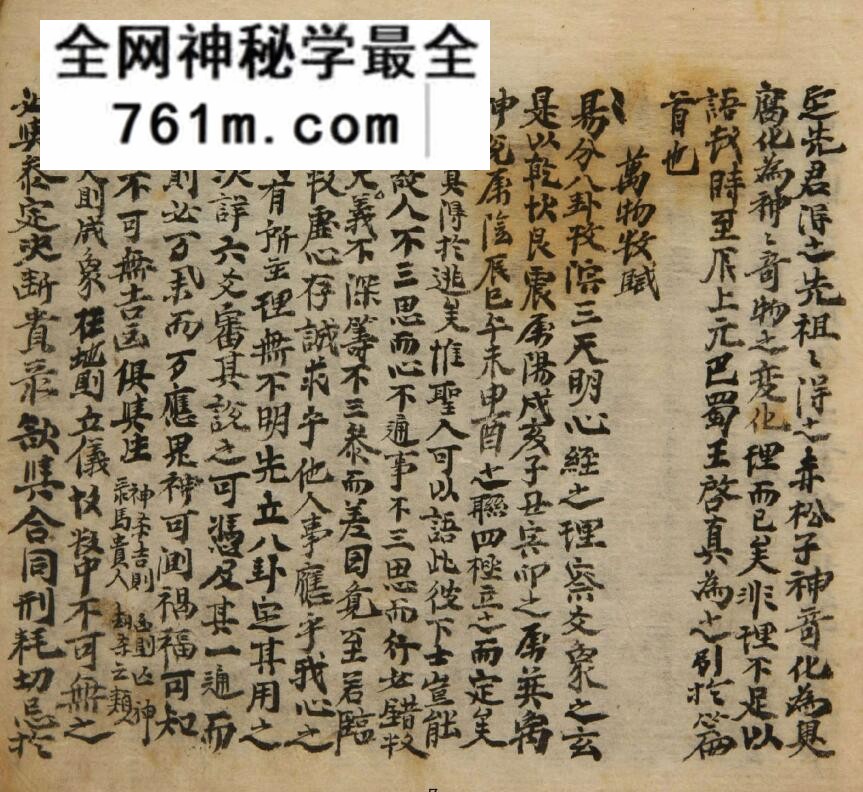 全网神秘学最全
761m.com
定先君得之先祖〻得之赤松子神奇化為臭
腐化為神〻奇物之変化理而已矣非理不足以
語哉時至一阝上元巴蜀王啓真為之引於篇
首也
萬物牧賦
易分八卦攷演三天明心経之理察爻象之玄
是以乾坎艮震属陽戌亥子丑寅卯之属巽离
坤兌属陰辰巳午未申酉之聯四極立之而定矣
其得於逃矣惟聖人可以語此彼下士豈能
故人不三思而心不通事不三思而行必錯牧
義不深等不三泰而差因竟至若臨
牧虚心存誠求乎他人事應乎我心之
有所主理無不明先立八卦定其用之
次詳六爻審其説之可憑及其一通而
則必万来而万應鬼神可測禍福可知
不可無吉凶俱其生神煞吉則凶則凶神
禄馬貴人劫煞之類
則成象在地則立儀故牧中不可無之
泰定决断貴录歙與合同刑耗切忌於